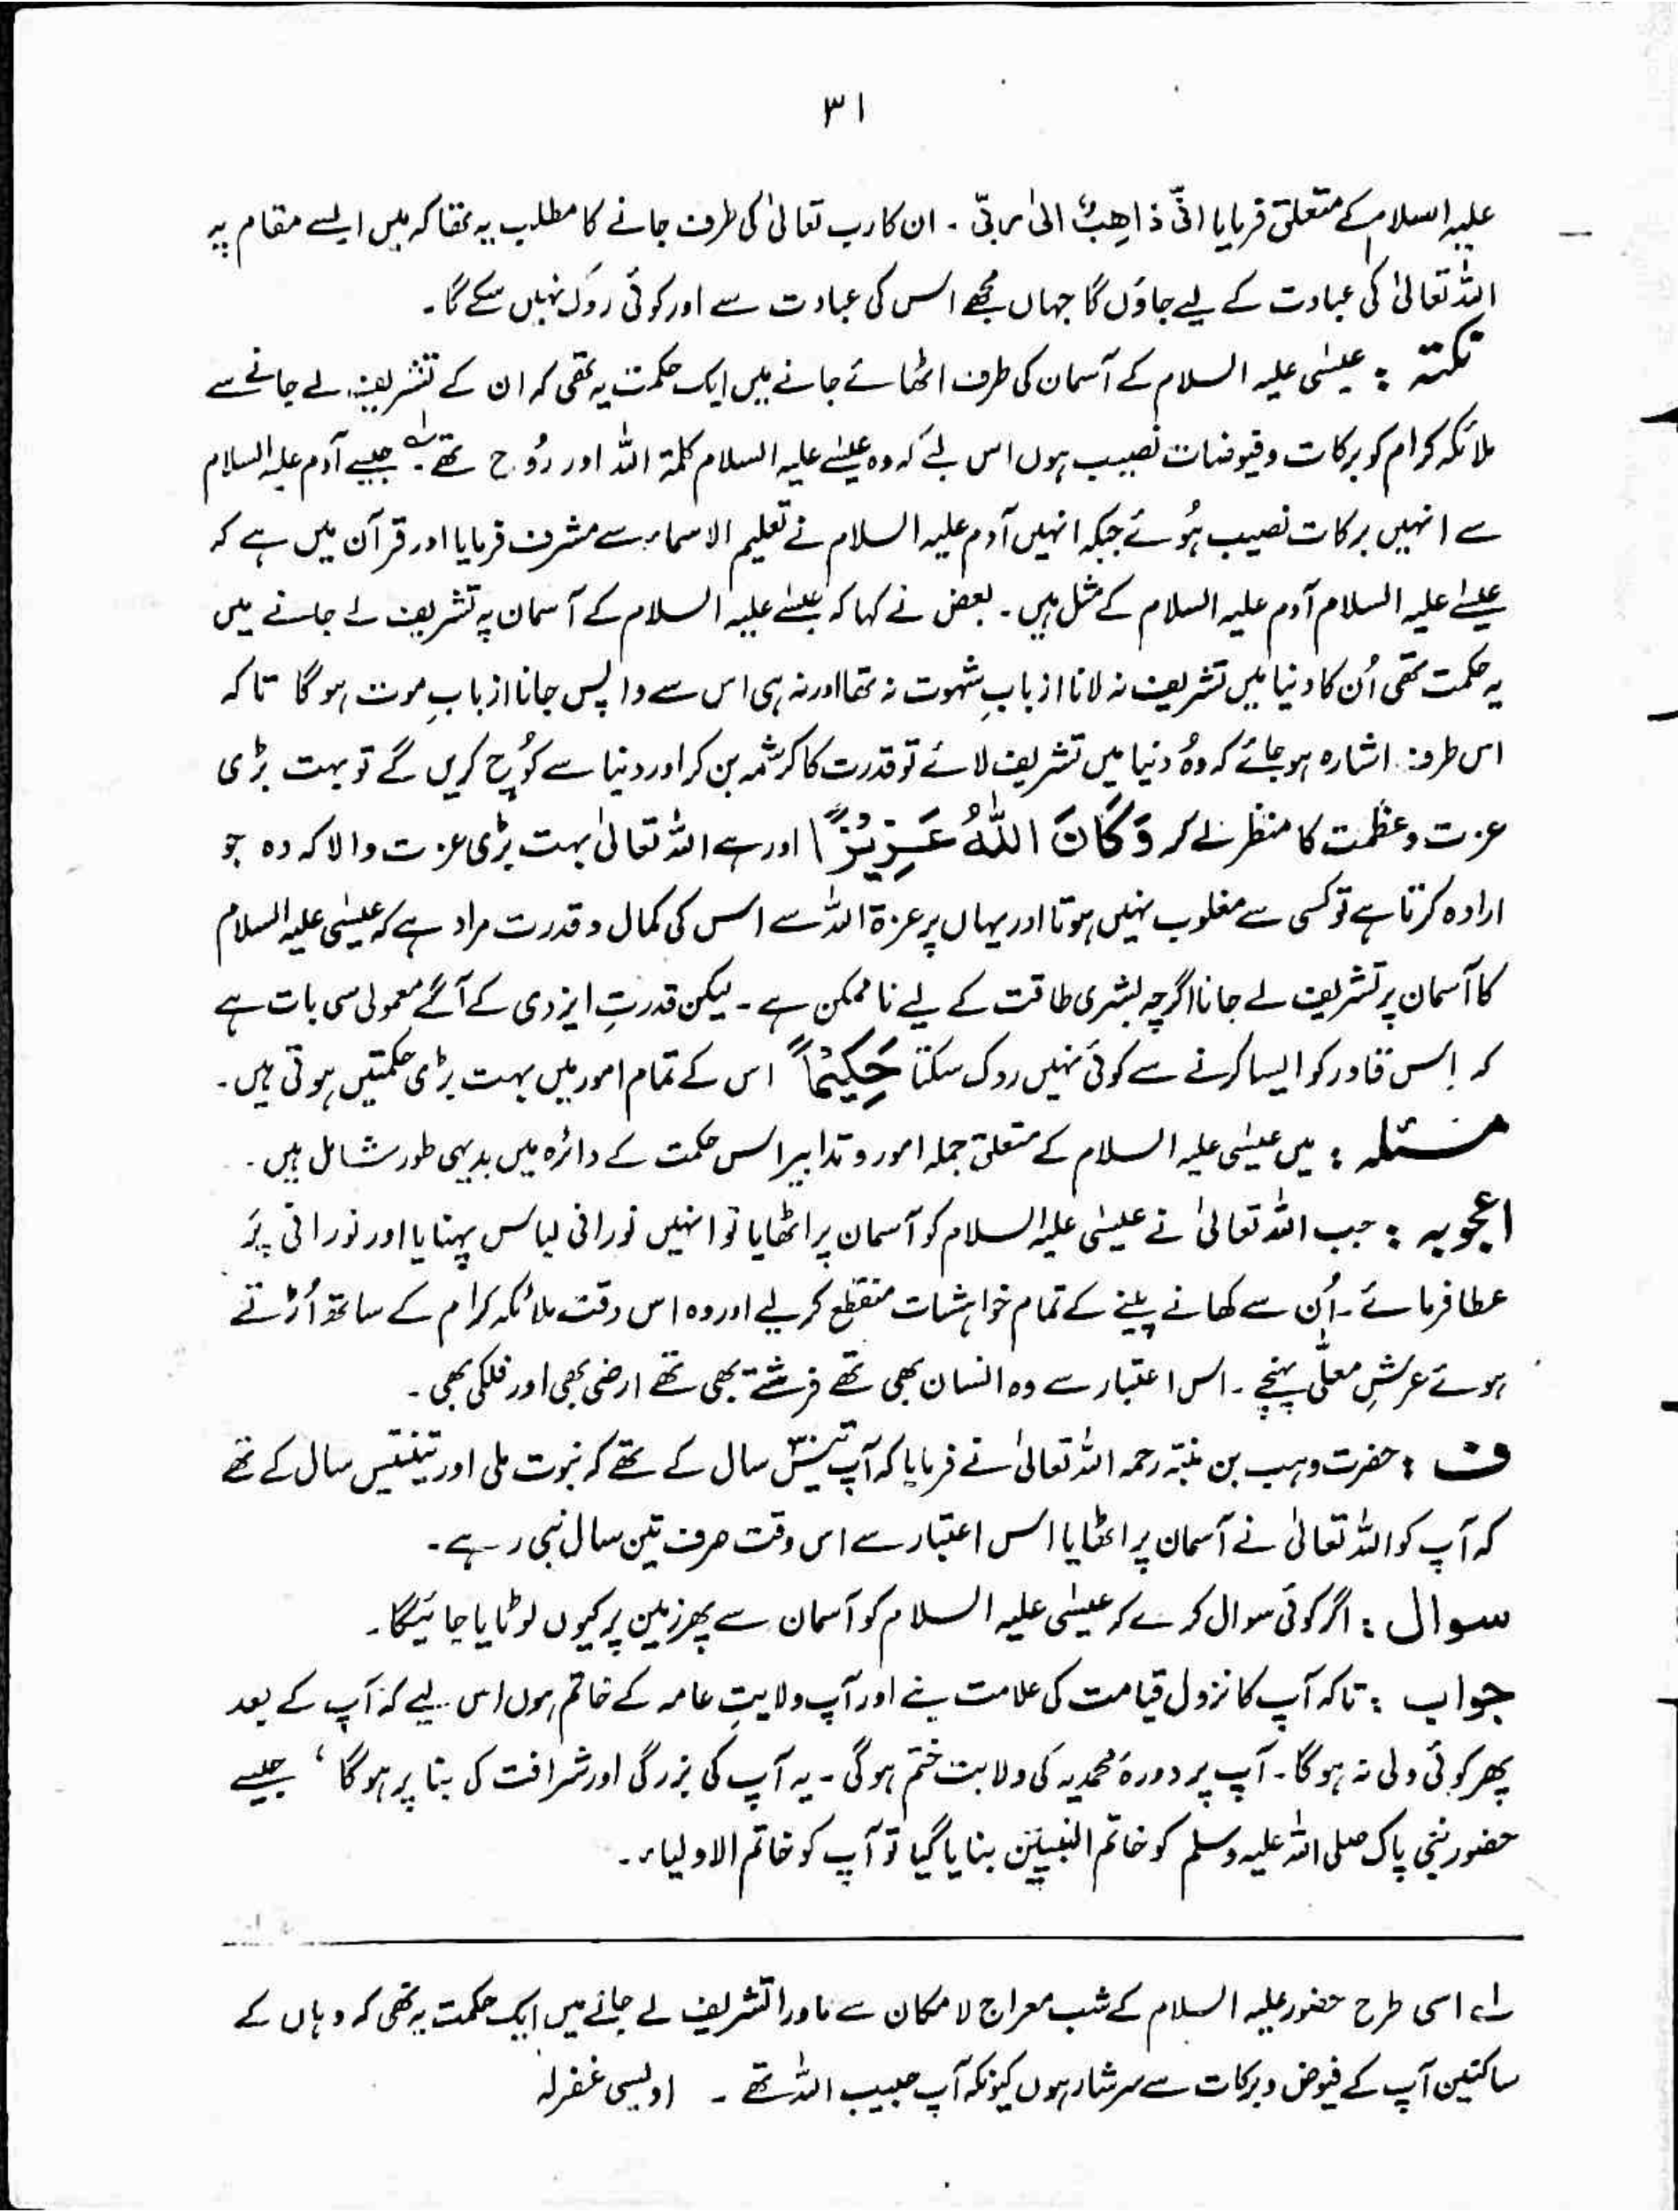 ۳۱
علیہ السلام کے متعلق فرمایا انّی ذاھِبٌ الیٰ ربّی ۔ ان کا رب تعالیٰ کی طرف جانے کا مطلب یہ تھا کہ میں ایسے مقام پہ
اللہ تعالیٰ کی عبادت کے لیے جاؤں گا جہاں مجھے اس کی عبادت سے اور کوئی روک نہیں سکے گا۔
نکتہ : عیسٰی علیہ السلام کے آسمان کی طرف اٹھائے جانے میں ایک حکمت یہ تھی کہ ان کے تشریف لے جانے سے
ملائکہ کرام کو برکات و فیوضات نصیب ہوں اس لیے کہ وہ عیسٰے علیہ السلام کلمۃ اللہ اور رُوح تھے۔ لے جیسے آدم علیہ السلام
سے انہیں برکات نصیب ہُوئے جبکہ انہیں آدم علیہ السلام نے تعلیم الاسماء سے مشرف فرمایا اور قرآن میں ہے کہ
عیسٰے علیہ السلام آدم علیہ السلام کے مثل ہیں۔ بعض نے کہا کہ عیسٰے علیہ السلام کے آسمان پہ تشریف لے جانے میں
یہ حکمت تھی اُن کا دنیا میں تشریف نہ لانا از بابِ شہوت نہ تھا اور نہ ہی اس سے واپس جانا از بابِ موت ہوگا تاکہ
اس طرف اشارہ ہو جائے کہ وہُ دنیا میں تشریف لائے تو قدرت کا کرشمہ بن کر اور دنیا سے کوُچ کریں گے تو بہت بڑی
عزت و عظمت کا منظر لے کر وَكَانَ اللّٰهُ عَزِيْزًا اور ہے اللہ تعالیٰ بہت بڑی عزت والا کہ وہ جو
ارادہ کرتا ہے تو کسی سے مغلوب نہیں ہوتا اور یہاں پر عزۃ اللہ سے اس کی کمال و قدرت مراد ہے کہ عیسٰی علیہ السلام
کا آسمان پر تشریف لے جانا اگرچہ بشری طاقت کے لیے ناممکن ہے۔ لیکن قدرتِ ایزدی کے آگے معمولی سی بات ہے
کہ اِس قادر کو ایسا کرنے سے کوئی نہیں روک سکتا حَكِيْمًا اس کے تمام امور میں بہت بڑی حکمتیں ہوتی ہیں۔
مسئلہ : میں عیسٰی علیہ السلام کے متعلق جملہ امور و تدابیر اس حکمت کے دائرہ میں بدیہی طور شامل ہیں۔
اعجوبہ : جب اللہ تعالیٰ نے عیسٰی علیہ السلام کو آسمان پر اٹھایا تو انہیں نورانی لباس پہنایا اور نورانی پَر
عطا فرمائے۔ اُن سے کھانے پینے کے تمام خواہشات منقطع کر لیے اور وہ اس وقت ملائکہ کرام کے ساتھ اُڑتے
ہوئے عرشِ معلّٰی پہنچے۔ اس اعتبار سے وہ انسان بھی تھے فرشتے بھی تھے ارضی بھی اور فلکی بھی۔
ف : حضرت وہب بن منبّہ رحمہ اللہ تعالیٰ نے فرمایا کہ آپ تیس سال کے تھے کہ نبوت ملی اور تینتیس سال کے تھے
کہ آپ کو اللہ تعالیٰ نے آسمان پر اٹھایا اس اعتبار سے اس وقت صرف تین سال نبی رہے۔
سوال : اگر کوئی سوال کرے کہ عیسٰی علیہ السلام کو آسمان سے پھر زمین پر کیوں لوٹایا جائیگا۔
جواب : تاکہ آپ کا نزول قیامت کی علامت بنے اور آپ ولایتِ عامہ کے خاتم ہوں اس لیے کہ آپ کے بعد
پھر کوئی ولی نہ ہوگا۔ آپ پر دورۂ محمدیہ کی ولایت ختم ہوگی۔ یہ آپ کی بزرگی اور شرافت کی بنا پر ہوگا ، جیسے
حضور نبی پاک صلی اللہ علیہ وسلم کو خاتم النبیین بنایا گیا تو آپ کو خاتم الاولیاء۔
لے اسی طرح حضور علیہ السلام کے شب معراج لامکان سے ماورا تشریف لے جانے میں ایک حکمت یہ تھی کہ وہاں کے
ساکنین آپ کے فیوض و برکات سے سرشار ہوں کیونکہ آپ حبیب اللہ تھے ۔ اویسی غفرلہ